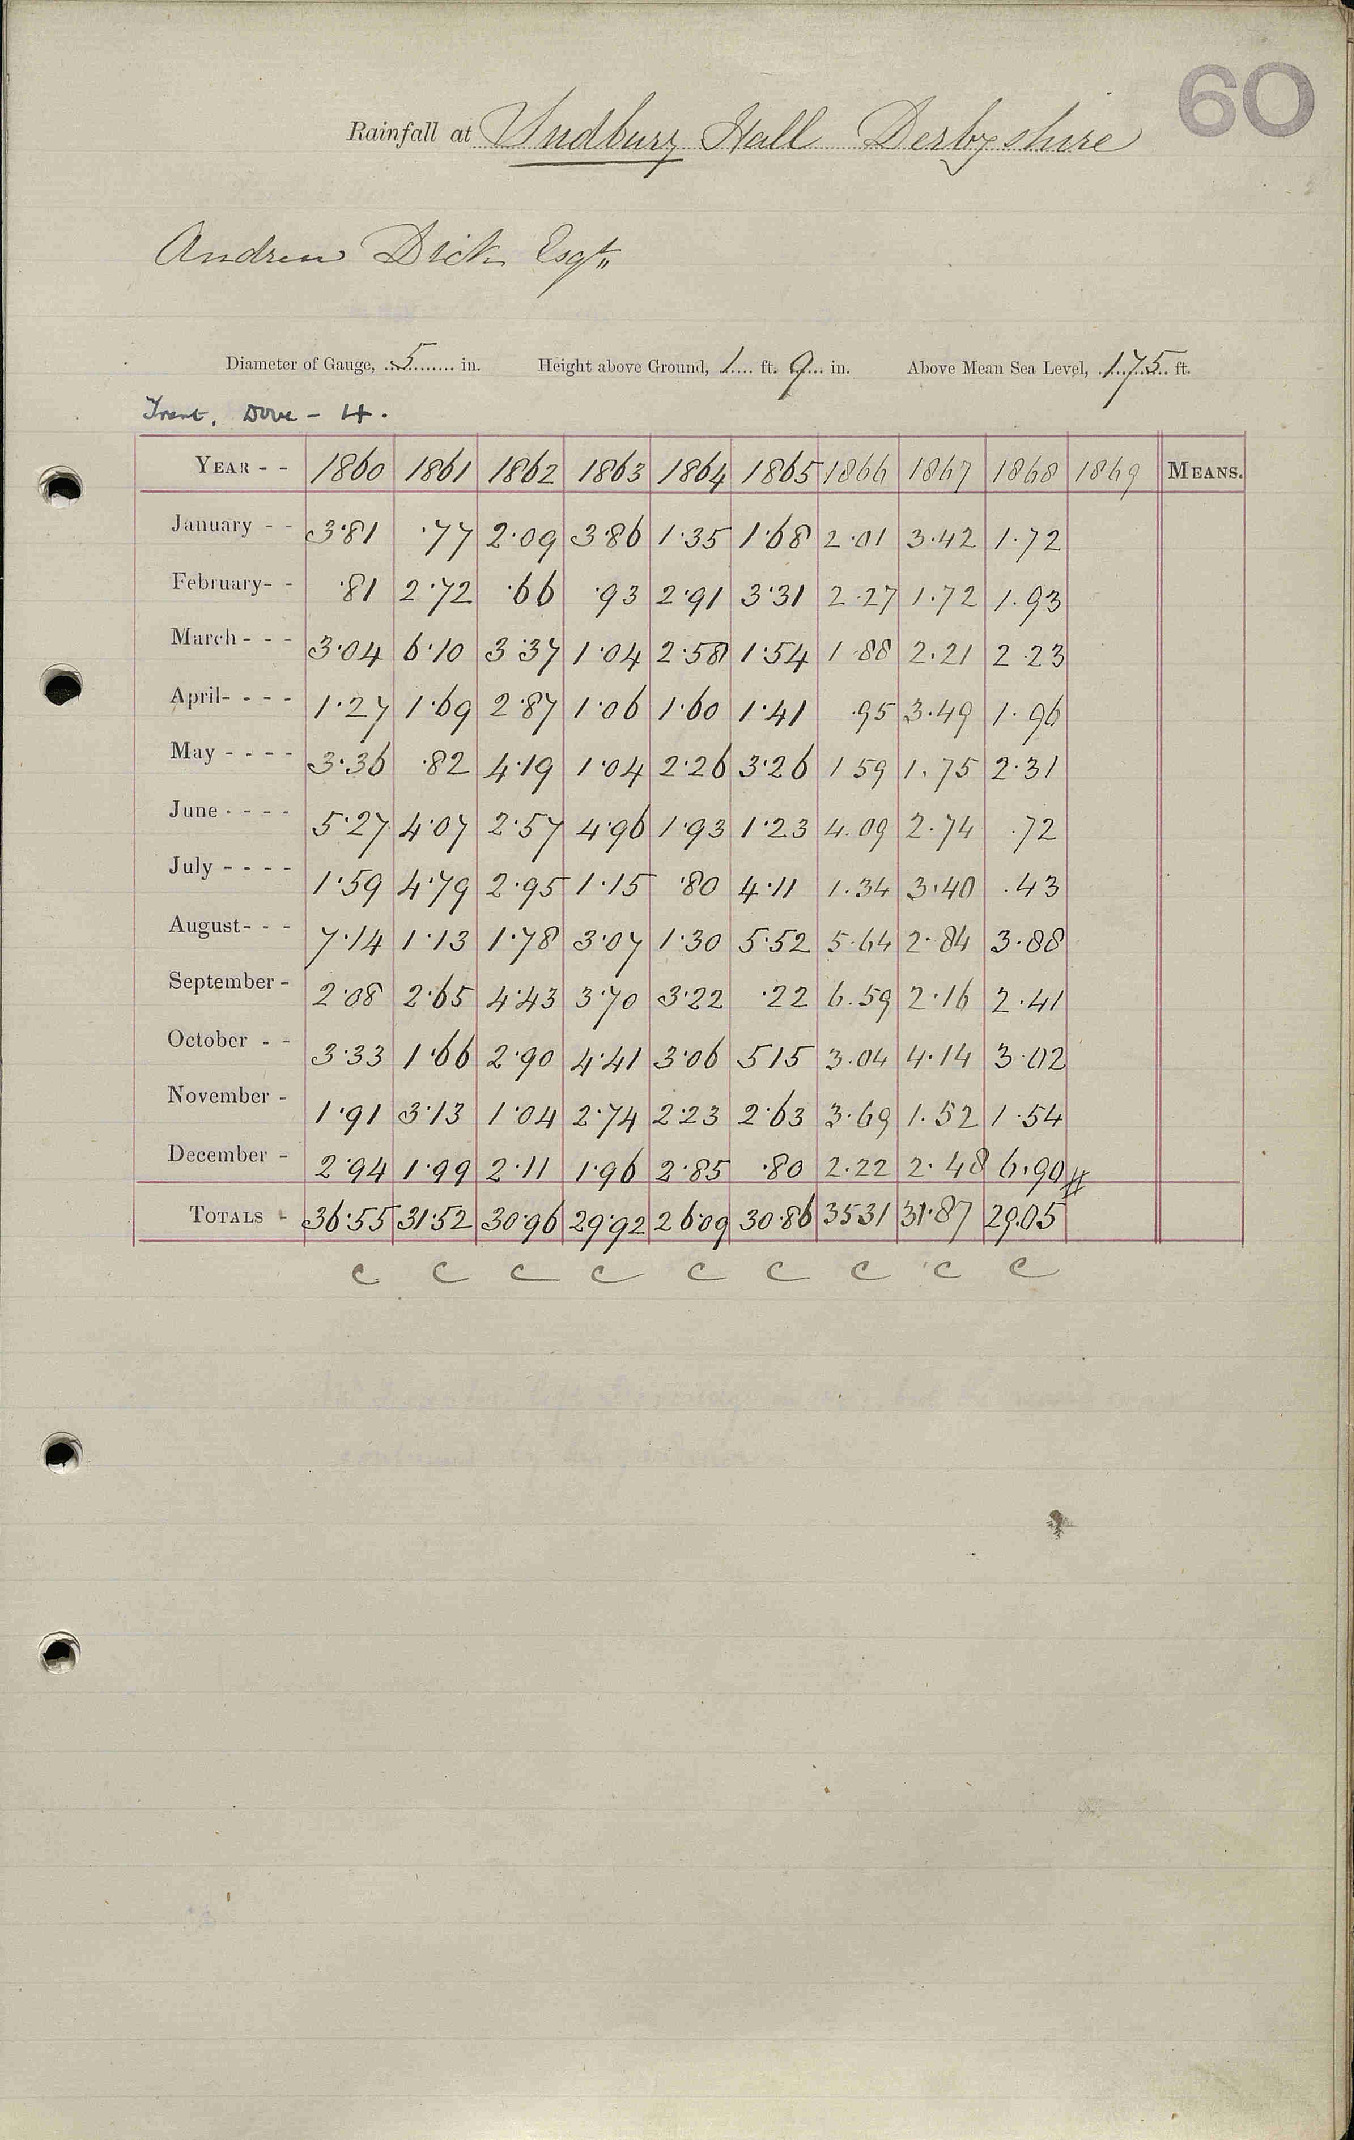 60
Rainfall at Sudbury Hall Derbyshire
Andrew Dick Esqr
Diameter of Gauge, 5 in. Height above Ground, 1 ft. 9 in. Above Mean Sea Level, 175 ft.
Trent, Dove - 4.
YEAR - - 1860 1861 1862 1863 1864 1865 1866 1867 1868 1869 MEANS.
January - - 3·81 ·77 2·09 3·86 1·35 1·68 2·01 3·42 1·72
February- - ·81 2·72 ·66 ·93 2·91 3·31 2·27 1·72 1·93
March - - - 3·04 6·10 3·37 1·04 2·58 1·54 1·88 2·21 2·23
April- - - - 1·27 1·69 2·87 1·06 1·60 1·41 ·95 3·49 1·96
May - - - - 3·36 ·82 4·19 1·04 2·26 3·26 1 59 1·75 2·31
June - - - - 5·27 4·07 2·57 4·96 1·93 1·23 4.09 2·74 ·72
July - - - - 1·59 4·79 2·95 1·15 ·80 4·11 1·34 3·40 ·43
August- - - 7·14 1·13 1·78 3·07 1·30 5·52 5·64 2·84 3·88
September - 2·08 2·65 4·43 3·70 3·22 ·22 6.59 2·16 2·41
October - - 3·33 1·66 2·90 4·41 3·06 5 15 3·04 4·14 3·02
November - 1·91 3·13 1·04 2·74 2·23 2·63 3·69 1·52 1·54
December - 2·94 1·99 2·11 1·96 2·85 ·80 2·22 2·48 6·90
TOTALS - 36·55 31·52 30·96 29·92 26·09 30·86 35 31 31·87 29.05
C C C C C C C C C